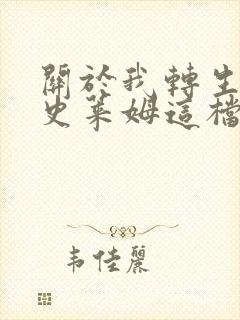 關於我轉生
史萊姆這檔
韦佳麗